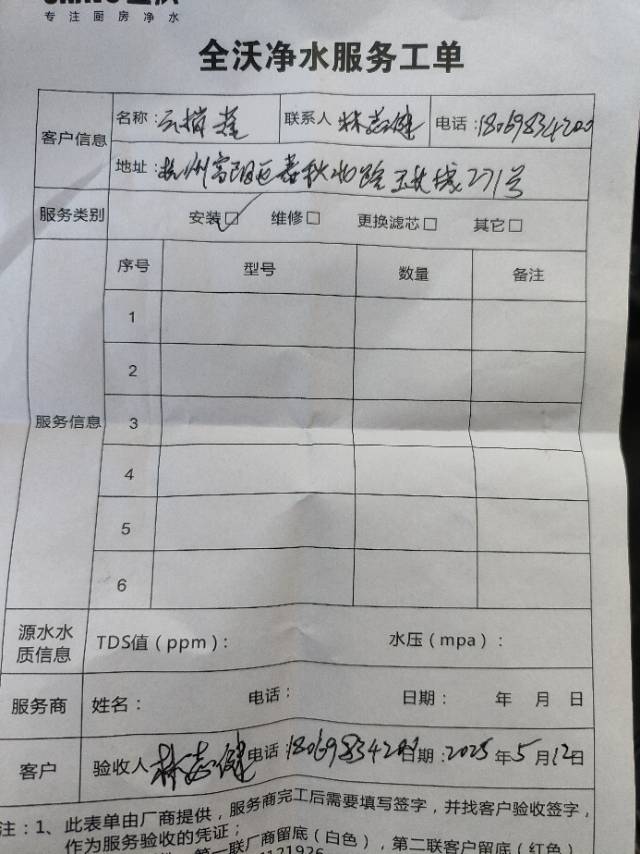 专注厨房净水
全沃净水服务工单
客户信息 名称： 联系人 林志健 电话：18069834200
地址：杭州富阳区春秋北路 271号
服务类别 安装☑ 维修□ 更换滤芯□ 其它□
服务信息 序号 型号 数量 备注
1
2
3
4
5
6
源水水质信息 TDS值（ppm）： 水压（mpa）：
服务商 姓名： 电话： 日期： 年 月 日
客户 验收人 林志健 电话 18069834200 日期：2025年5月12日
注：1、此表单由厂商提供，服务商完工后需要填写签字，并找客户验收签字，
作为服务验收的凭证；
第一联厂商留底（白色），第二联客户留底（红色）